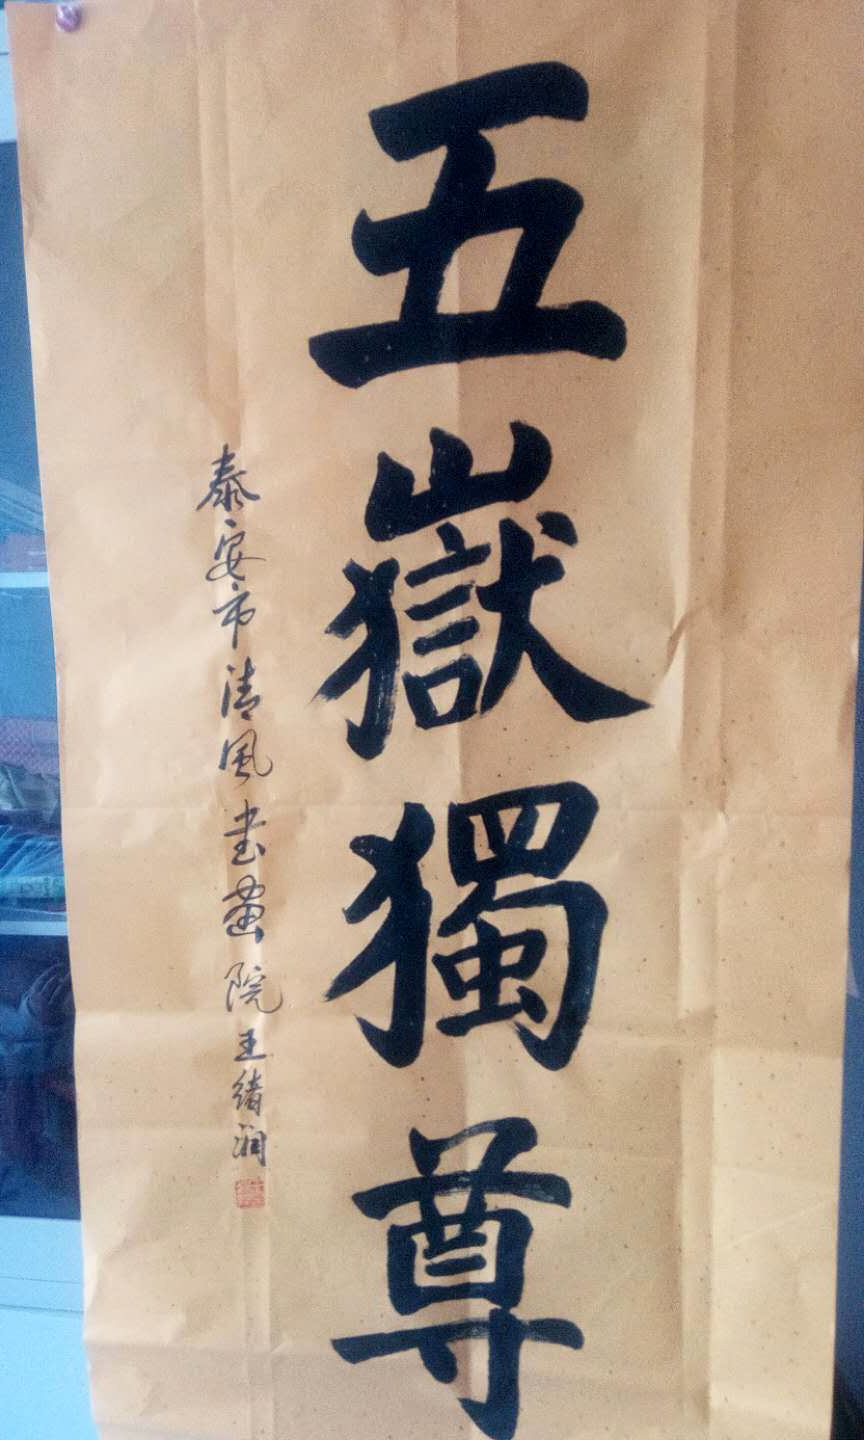 五嶽獨尊
泰安市清風书画院王绪润